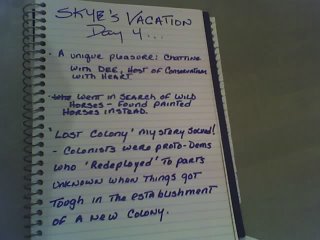 SKYE'S VACATION
Day 4...
· A unique pleasure: Chatting
with DEE, Host of Conservatism
with HEART
· Went in search of wild
Horses - found painted
Horses instead.
"Lost Colony" mystery solved!
- Colonists were proto-Dems
who 'Redeployed' to parts
unknown when things got
tough in the establishment
of a new colony.